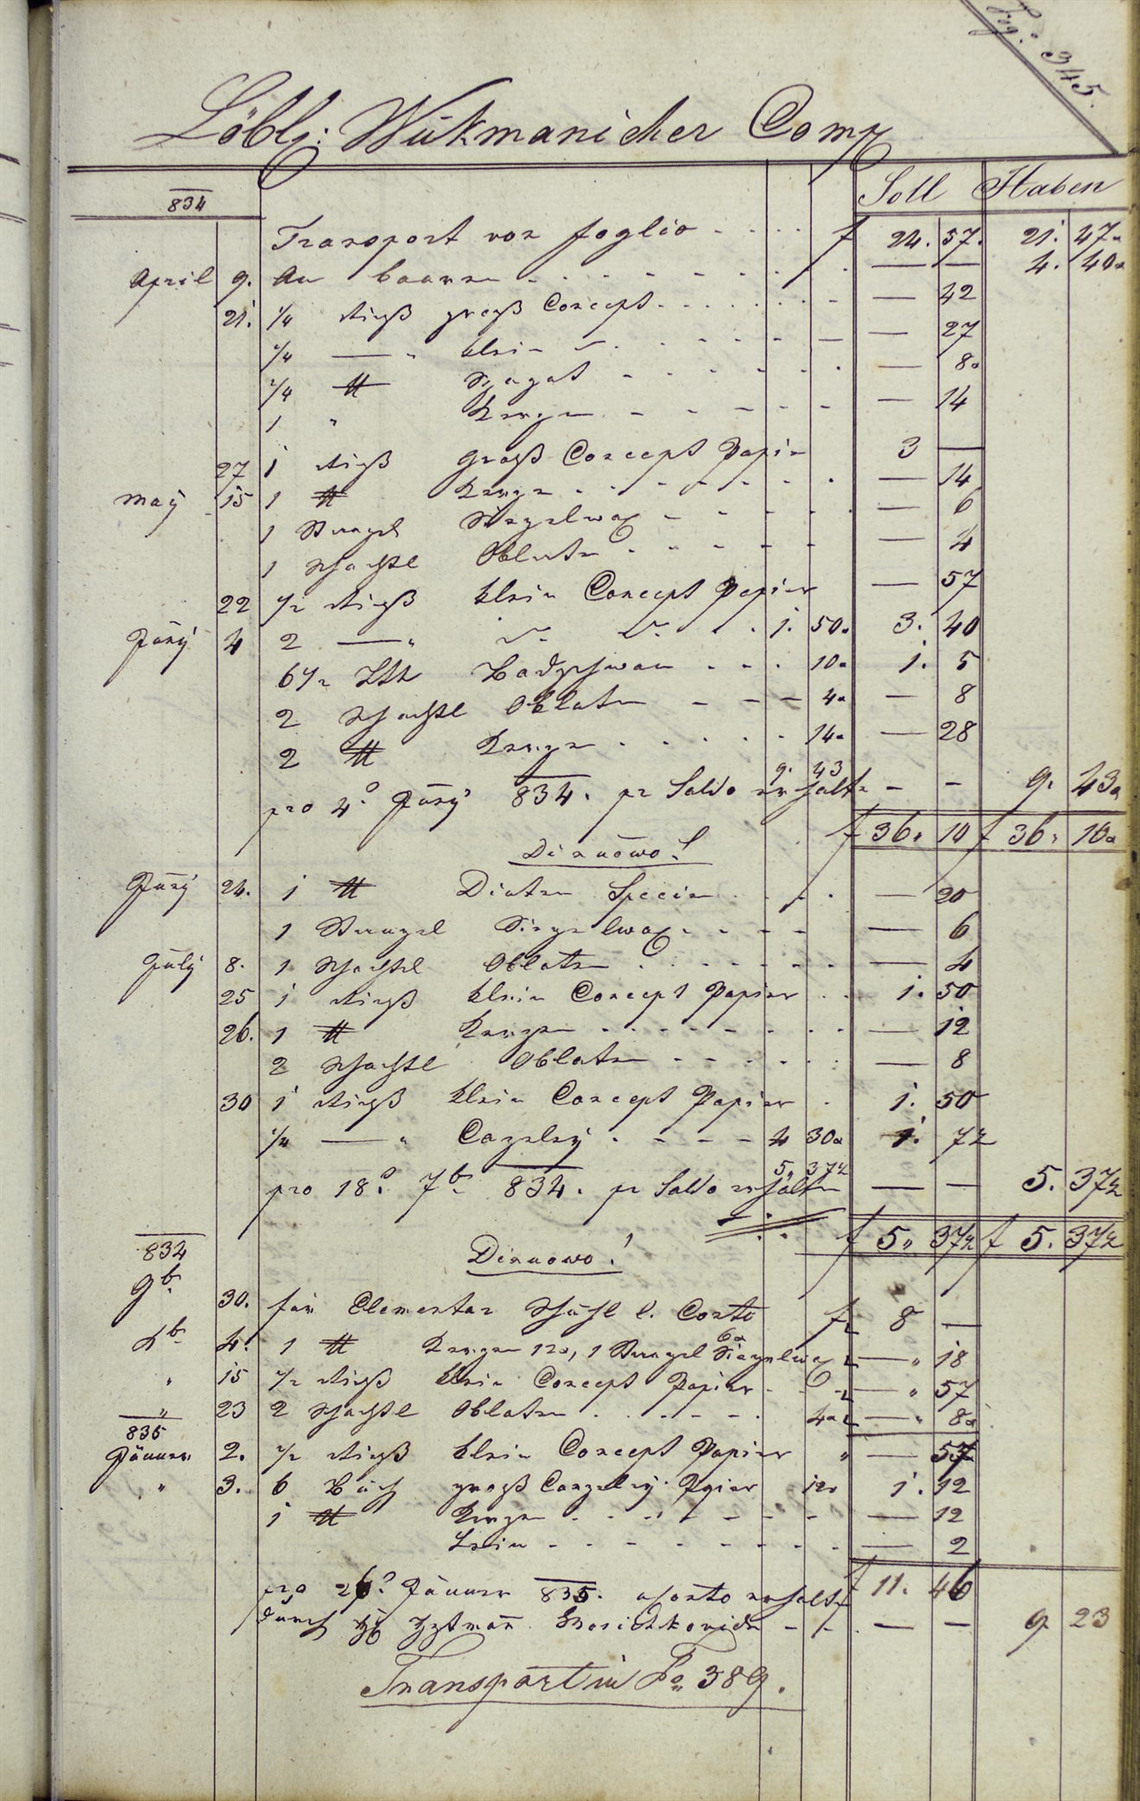 Fog: 345.
Löbl: Wukmanicher Comp
834 Soll Haben
Transport von foglio f 24. 57. 21. 47
April 9. An baaren — — 4. 40
21. 1/4 Rieß groß Concept — 42
1/4 — " klein — 27
1/4 ℔ Spagat — 8
1 " Kerzen — 14
27 1 Rieß Groß Concept Papier 3 —
May 15 1 ℔ Kerzen — 14
1 Stangel Siegelwax — 6
1 Schachtl Oblaten — 4
22 1/2 Rieß klein Concept Papier — 57
Juny 4 2 — " 1. 50 3. 40
6 1/2 Lth Badschwam 10 1. 5
2 Schachtl Oblaten 4 — 8
2 ℔ Kerzen 14 — 28
9. 43
pro 4º Juny 834. pr Saldo erhalten — — 9. 43
f 36. 10 f 36. 10
Dinuovo!
Juny 24. 1 ℔ Diaten Specien — 20
1 Stangel Siegelwax — 6
July 8. 1 Schachtel Oblaten — 4
25 1 Rieß klein Concept Papier 1. 50
26. 1 ℔ Kerzen — 12
2 Schachtl Oblaten — 8
30 1 Rieß klein Concept Papier 1. 50
1/4 — " Canzeley 4 30 1. 7 1/2
5. 37 1/2
pro 18º 7b 834. pr Saldo erhalten — — 5. 37 1/2
f 5" 37 1/2 f 5. 37 1/2
834 Dinuovo!
9b 30. für Elementar Schuhl l. Conto f 8 —
6
Xb 4. 1 ℔ Kerzen 12, 1 Stangel Siegelwax — " 18
" 15 1/2 Rieß klein Concept Papier — " 57
" 23 2 Schachtl Oblaten 4 — " 8
835
Jänner 2. 1/2 Rieß klein Concept Papier " — 57
" 3. 6 Buch groß Canzeley Papier 12 1. 12
1 ℔ Kerzen — 12
Leim — 2
f 11. 46
pro 26º Jänner 835. a Conto erhalten
durch H Hptman — — 9 23
Transport in Fo 389.